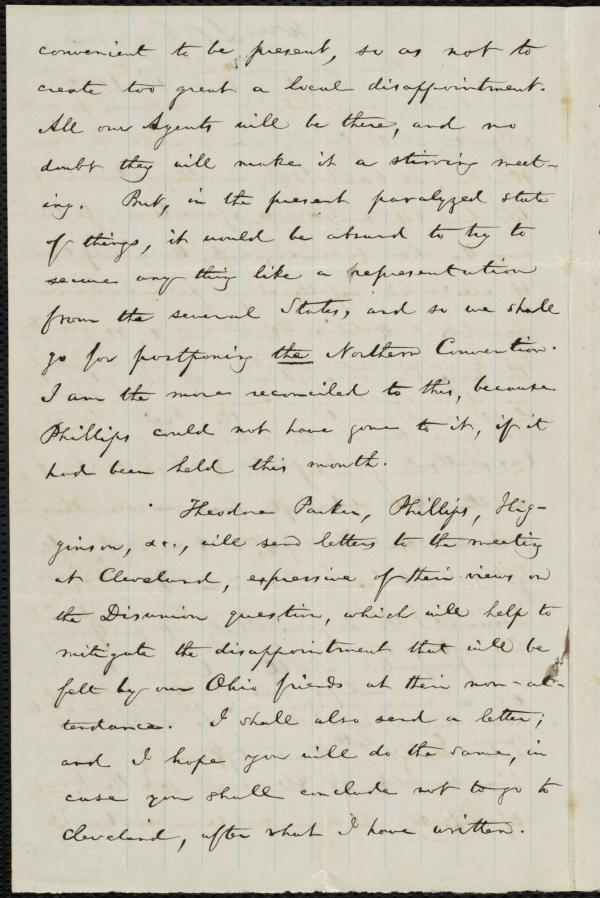 convenient to be present, so as not to
create too great a local disappointment.
All our Agents will be there, and no
doubt they will make it a stirring meet-
ing. But, in the present paralyzed state
of things, it would be absurd to try to
secure any thing like a representation
from the several States, and so we shall
go for postponing the Northern Convention.
I am the more reconciled to this, because
Phillips could not have gone to it, if it
had been held this month.
Theodore Parker, Phillips, Hig-
ginson, &c., will send letters to the meeting
at Cleveland, expressive of their views on
the Disunion question, which will help to
mitigate the disappointment that will be
felt by our Ohio friends at their non-at-
tendance. I shall also send a letter;
and I hope you will do the same, in
case you shall conclude not to go to
Cleveland, after what I have written.